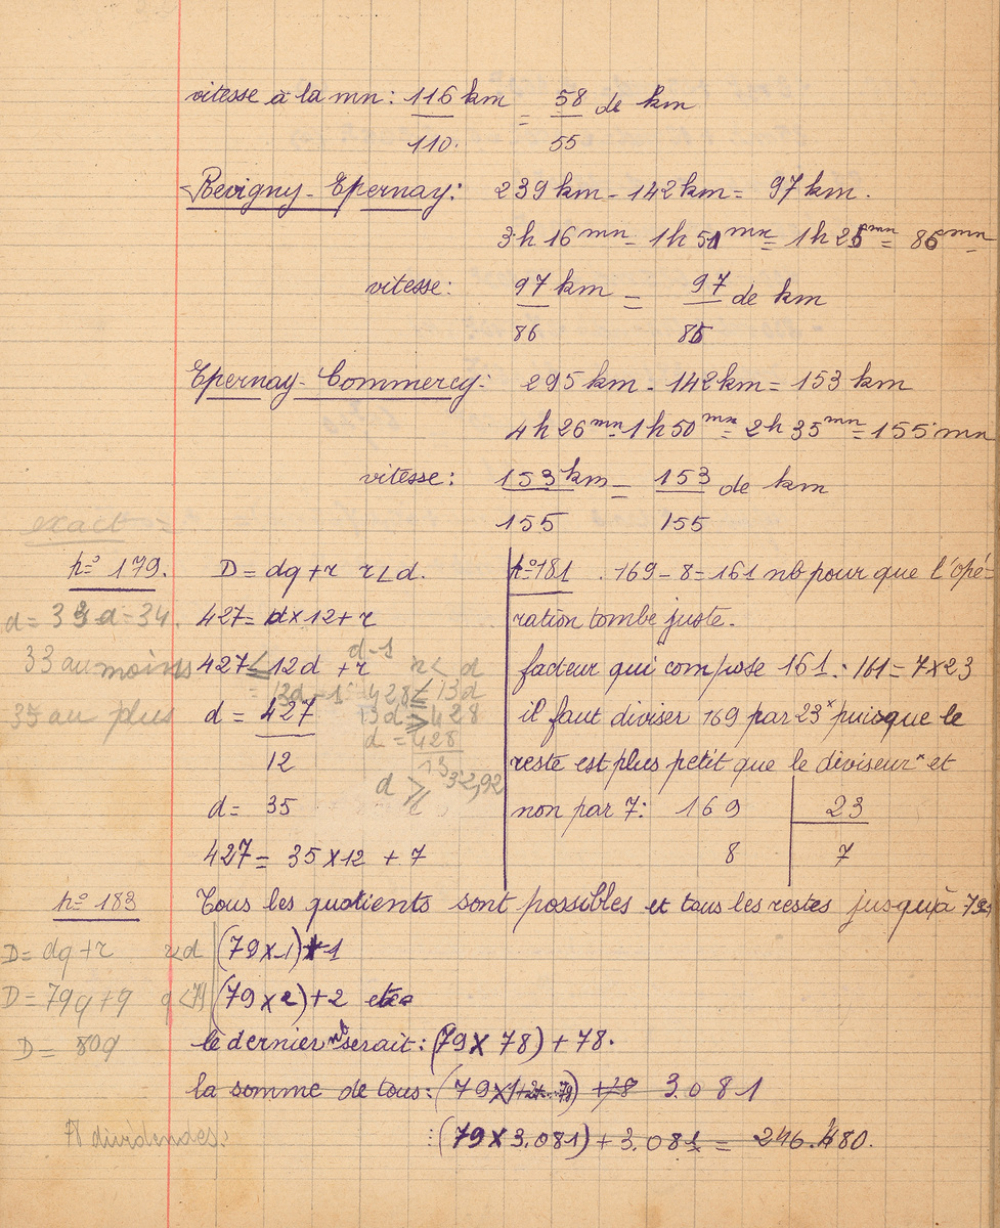 vitesse à la mn : 116 km = 58 de km
110. 55
Revigny - Epernay : 239 km - 142 km = 97 km.
3 h 16 mn - 1 h 51 mn = 1 h 25 mn = 86 mn
vitesse : 97 km = 97 de km
86 86
Epernay - Commercy : 295 km - 142 km = 153 km
4 h 26 mn - 1 h 50 mn = 2 h 35 mn = 155 mn
vitesse : 153 km = 153 de km
155 155
exact =
n° 179. D = dq + r r < d.
d = 33 d = 34. 427 = d x 12 + r
d - 1
33 au moins 427 ≤ 12d + r r < d
= 13d - 1 428 ≤ 13d
35 au plus d = 427 13d ≥ 428
12 d = 428
13
d ≥ 32,92
d = 35
427 = 35 x 12 + 7
n° 181 . 169 - 8 = 161 nb pour que l'opé-
ration tombe juste.
facteur qui compose 161 : 161 = 7 x 23
il faut diviser 169 par 23 x puisque le
reste est plus petit que le diviseur x et
non par 7 : 169 23
8 7
n° 183 Tous les quotients sont possibles et tous les restes jusqu'à 79
D = dq + r r < d (79 x 1) + 1
D = 79q + q q < 79 (79 x 2) + 2 etc
D = 80q le dernier nb serait : (79 x 78) + 78.
la somme de tous : (79 x 1+2+...78) + 78 3.081
78 dividendes : : (79 x 3.081) + 3.081 = 246.480.